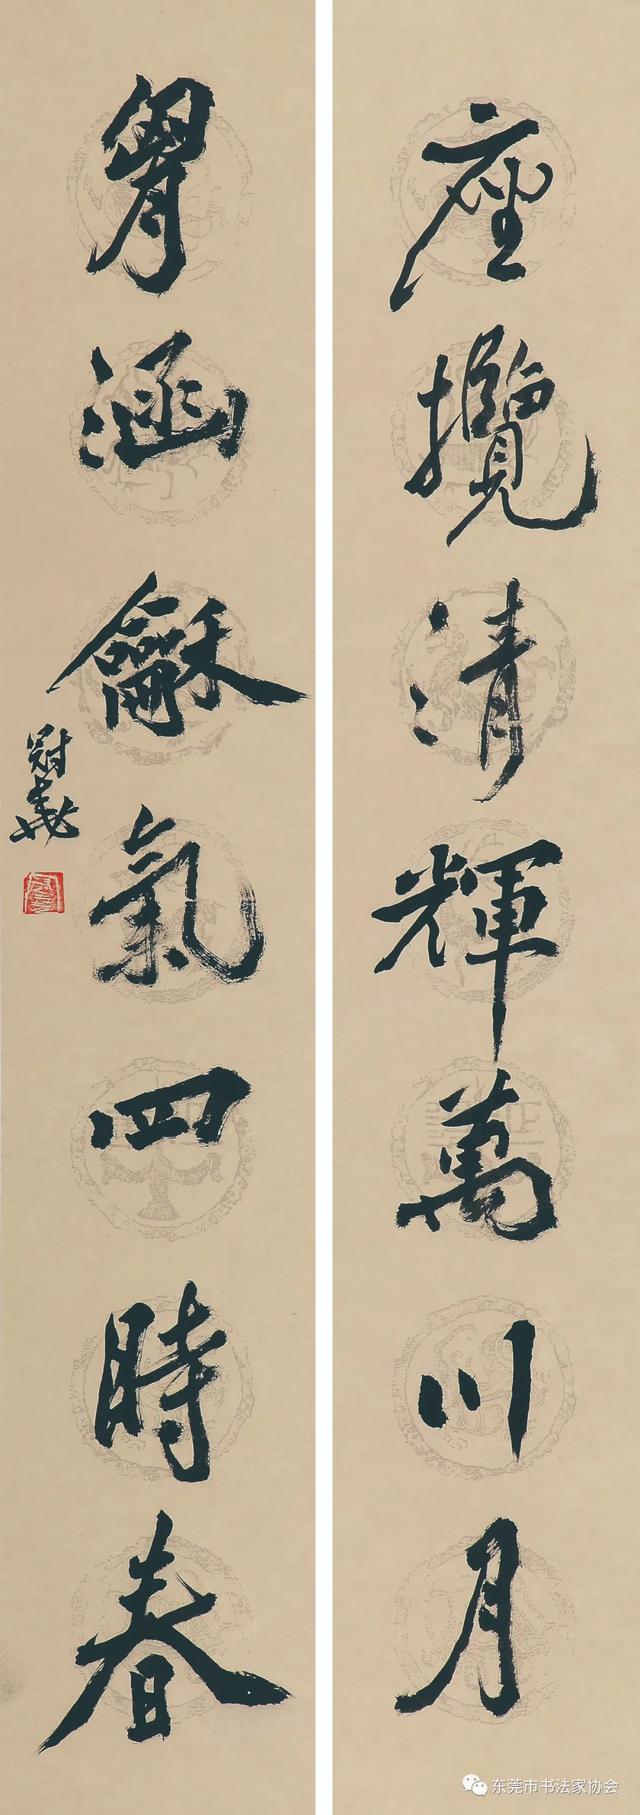 座攬清輝萬川月
胷涵龢氣四時春
冠義
东莞市书法家协会